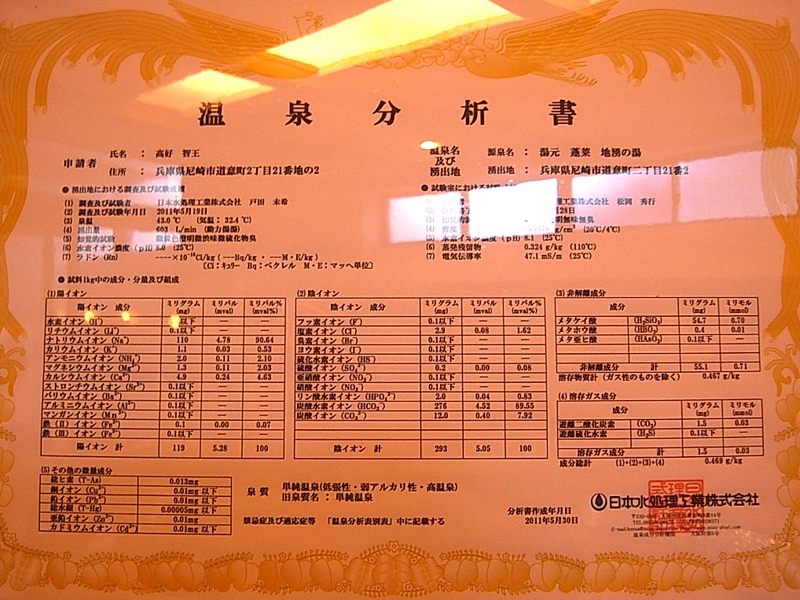 温泉分析書
申請者
氏名 : 高好 智王
住所 : 兵庫県尼崎市道意町2丁目21番地の2
温泉名及び湧出地
源泉名 : 湯元 蓬莱 地湧の湯
湧出地 : 兵庫県尼崎市道意町二丁目21番2
● 湧出地における調査及び試験成績
(1) 調査及び試験者 日本水処理工業株式会社 戸田 未希
(2) 調査及び試験年月日 2011年5月19日
(3) 泉温 43.0 ℃ (気温 : 32.4℃)
(4) 湧出量 603 L/min (動力揚湯)
(5) 知覚的試験 微黄色澄明微渋味微硫化物臭
(6) 水素イオン濃度 (pH) 8.0 (25℃)
(7) ラドン (Rn) ----×10⁻¹⁰Ci/kg (---Bq/kg ・ ---M・E/kg)
[Ci:キュリー Bq:ベクレル M・E:マッヘ単位]
● 試験室における
工業株式会社 松岡 秀行
28日
明無味無臭
(4) 密度 g/cm³ (20℃/4℃)
(5) 水素イオン濃度 (pH) 8.1 (25℃)
(6) 蒸発残留物 0.324 g/kg (110℃)
(7) 電気伝導率 47.1 mS/m (25℃)
● 試料1kg中の成分・分量及び組成
(1) 陽イオン
陽イオン 成分 ミリグラム (mg) ミリバル (mval) ミリバル% (mval%)
水素イオン (H⁺) 0.1以下 — —
リチウムイオン (Li⁺) 0.1以下 — —
ナトリウムイオン (Na⁺) 110 4.78 90.64
カリウムイオン (K⁺) 1.1 0.03 0.53
アンモニウムイオン (NH₄⁺) 2.0 0.11 2.10
マグネシウムイオン (Mg²⁺) 1.3 0.11 2.03
カルシウムイオン (Ca²⁺) 4.9 0.24 4.63
ストロンチウムイオン (Sr²⁺) 0.1以下 — —
バリウムイオン (Ba²⁺) 0.1以下 — —
アルミニウムイオン (Al³⁺) 0.1以下 — —
マンガンイオン (Mn²⁺) 0.1以下 — —
鉄 (II) イオン (Fe²⁺) 0.1 0.00 0.07
鉄 (III) イオン (Fe³⁺) 0.1以下 — —
陽イオン 計 119 5.28 100
(2) 陰イオン
陰イオン 成分 ミリグラム (mg) ミリバル (mval) ミリバル% (mval%)
フッ素イオン (F⁻) 0.1以下 — —
塩素イオン (Cl⁻) 2.9 0.08 1.62
臭素イオン (Br⁻) 0.1以下 — —
ヨウ素イオン (I⁻) 0.1以下 — —
硫化水素イオン (HS⁻) 0.1以下 — —
硫酸イオン (SO₄²⁻) 0.2 0.00 0.08
亜硝酸イオン (NO₂⁻) 0.1以下 — —
硝酸イオン (NO₃⁻) 0.1以下 — —
リン酸水素イオン (HPO₄²⁻) 2.0 0.04 0.83
炭酸水素イオン (HCO₃⁻) 276 4.52 89.55
炭酸イオン (CO₃²⁻) 12.0 0.40 7.92
陰イオン 計 293 5.05 100
(3) 非解離成分
成分 ミリグラム (mg) ミリモル (mmol)
メタケイ酸 (H₂SiO₃) 54.7 0.70
メタホウ酸 (HBO₂) 0.4 0.01
メタ亜ヒ酸 (HAsO₂) 0.1以下 —
非解離成分 計 55.1 0.71
溶存物質計 (ガス性のものを除く) 0.467 g/kg
(4) 溶存ガス成分
成分 ミリグラム (mg) ミリモル (mmol)
遊離二酸化炭素 (CO₂) 1.5 0.03
遊離硫化水素 (H₂S) 0.1以下 —
溶存ガス成分 計 1.5 0.03
成分総計 (1)+(2)+(3)+(4) 0.469 g/kg
(5) その他の微量成分
総ヒ素 (T-As) 0.013mg
銅イオン (Cu²⁺) 0.01mg 以下
鉛イオン (Pb²⁺) 0.01mg 以下
総水銀 (T-Hg) 0.00005mg 以下
亜鉛イオン (Zn²⁺) 0.01mg 以下
カドミウムイオン (Cd²⁺) 0.01mg 以下
泉質 単純温泉(低張性・弱アルカリ性・高温泉)
旧泉質名 : 単純温泉
禁忌症及び適応症等 「温泉分析表別表」中に記載する
分析書作成年月日
2011年5月30日
日本水処理工業株式会社